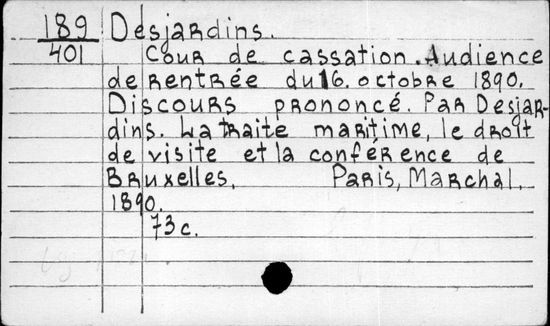 189 Desjardins.
401 Cour de cassation. Audience
de rentrée du 16. octobre 1890.
Discours prononcé. Par Desjar-
dins. La traite maritime, le droit
de visite et la conférence de
Bruxelles. Paris, Marchal,
1890.
73c.